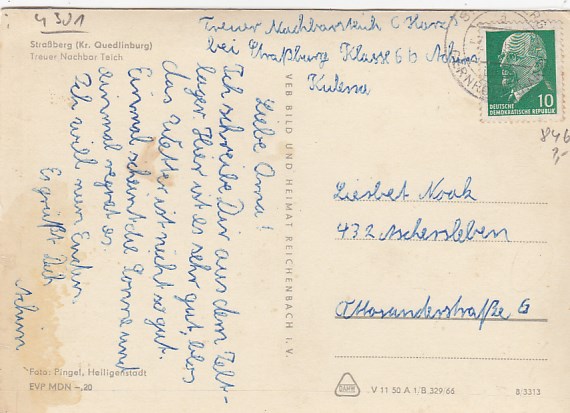 4301
Straßberg (Kr. Quedlinburg)
Treuer Nachbar Teich
Treuer Nachbarteich (Harz)
bei Straßburg Klasse 6b Achim
DEUTSCHE
DEMOKRATISCHE REPUBLIK
10
846
Liebe Oma!
Ich schreibe Dir aus dem Zelt-
lager. Hier ist es sehr gut, blos
das Wetter ist nicht so gut.
Einmal scheint die Sonne und
einmal regnet es.
Ich will nun Enden.
Es grüßt Dich
Achim
VEB BILD UND HEIMAT REICHENBACH I. V.
Liesbet Noak
432 Aschersleben
6
Foto: Pingel, Heiligenstadt
EVP MDN -,20
V 11 50 A 1/B, 329/66
8/3313